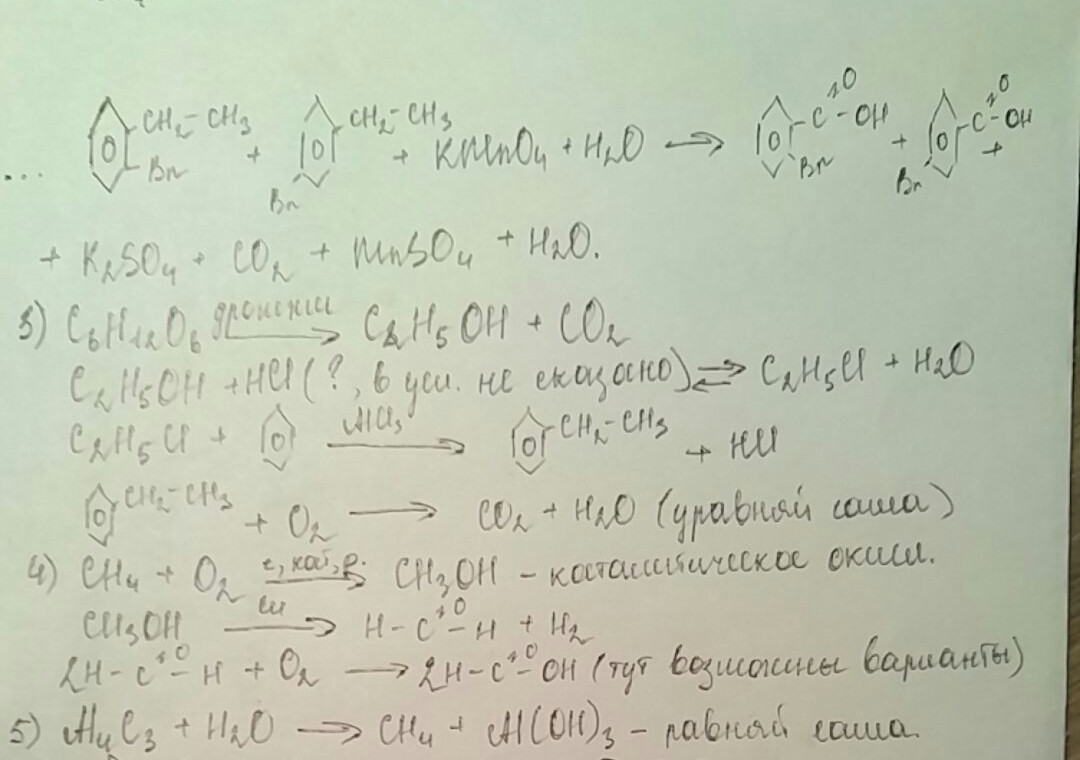 ... CH2-CH3 Br + CH2-CH3 Br + KMnO4 + H2O → C=O-OH Br + C=O-OH Br +
+ K2SO4 + CO2 + MnSO4 + H2O.
3) C6H12O6 дрожжи → C2H5OH + CO2
C2H5OH + HCl (?, в усл. не сказано) ⇌ C2H5Cl + H2O
C2H5Cl + AlCl3 → CH2-CH3 + HCl
CH2-CH3 + O2 → CO2 + H2O (уравняй сама)
4) CH4 + O2 t, кат, p. → CH3OH - каталитическое окисл.
CH3OH Cu → H-C=O-H + H2
2H-C=O-H + O2 → 2H-C=O-OH (тут возможны варианты)
5) Al4C3 + H2O → CH4 + Al(OH)3 - равняй сама.